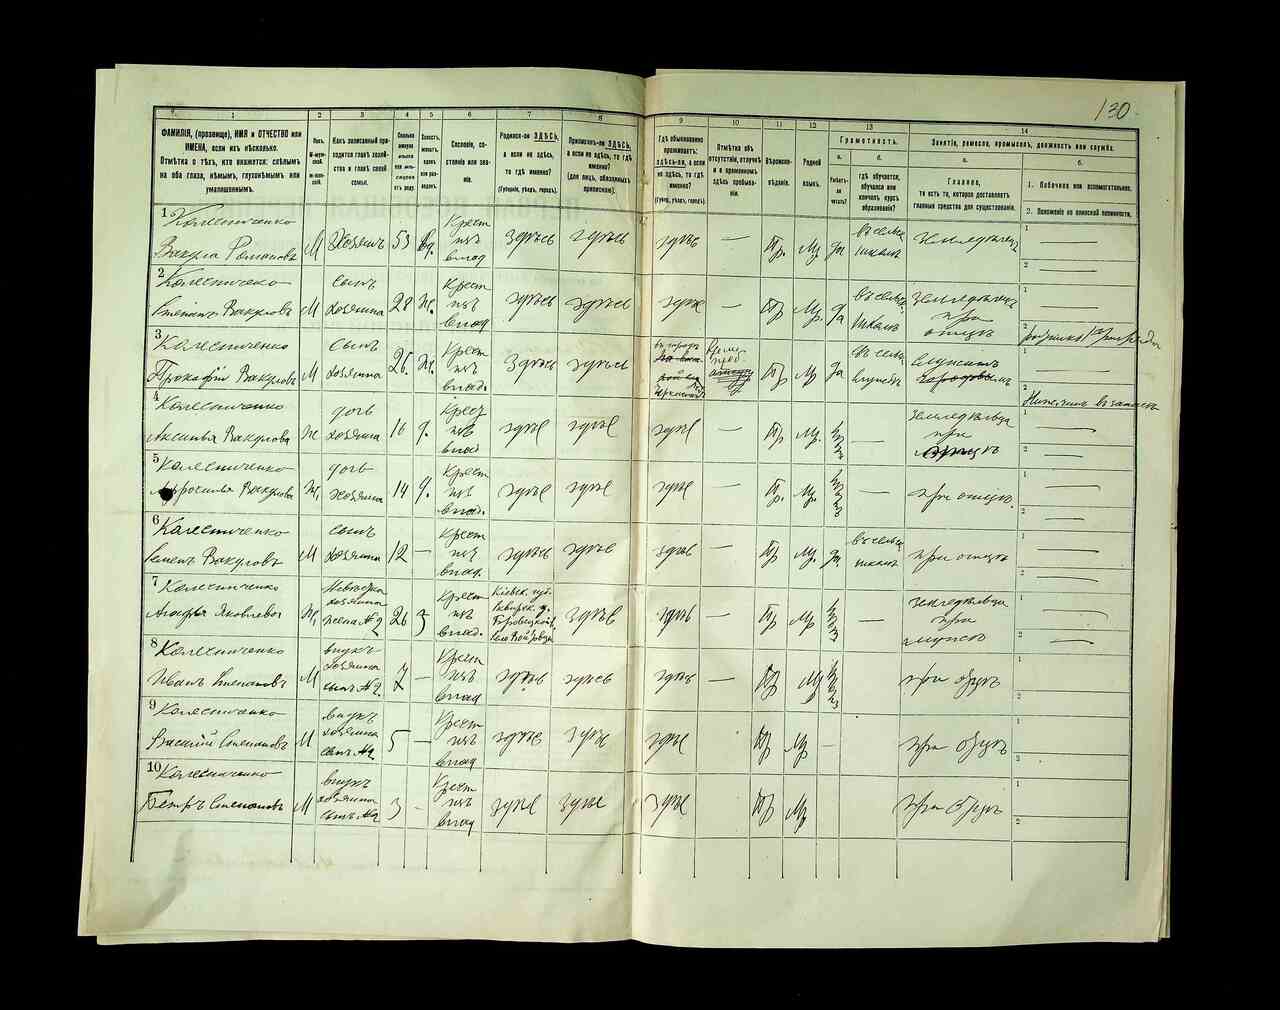 130.
1
2
3
4
5
6
7
8
9
10
11
12
13
14
ФАМИЛІЯ, (прозвище), ИМЯ и ОТЧЕСТВО или
ИМЕНА, если ихъ нѣсколько.
Отмѣтка о тѣхъ, кто окажется: слѣпымъ
на оба глаза, нѣмымъ, глухонѣмымъ или
умалишеннымъ.
Полъ.
М-мужской.
Ж-женскій.
Какъ записанный при-
ходится главѣ хозяй-
ства и главѣ своей
семьи.
Сколько
минуло
лѣтъ
Холостъ,
женатъ,
вдовъ
или раз-
веденъ.
Сословіе, со-
стояніе или зва-
ніе.
Родился-ли ЗДѢСЬ,
а если не здѣсь,
то гдѣ именно?
(Губернія, уѣздъ, городъ).
Приписанъ-ли ЗДѢСЬ,
а если не здѣсь, то гдѣ
именно?
(для лицъ, обязанныхъ
припискою).
Гдѣ обыкновенно
проживаетъ:
здѣсь-ли, а если
не здѣсь, то гдѣ
именно?
(Губер., уѣздъ, городъ).
Отмѣтка объ
отсутствіи, отлучкѣ
и о временномъ
здѣсь пребыва-
ніи.
Вѣроиспо-
вѣданіе.
Родной
языкъ.
Грамотность.
а.
б.
Умѣетъ-
ли
читать?
гдѣ обучается,
обучался или
кончилъ курсъ
образованія?
Занятіе, ремесло, промыселъ, должность или служба.
а.
б.
Главное,
то есть то, которое доставляетъ
главныя средства для существованія.
1. Побочное или вспомогательное.
2. Положеніе по воинской повинности.
1 Колесниченко
Вакула Романовъ М Хозяинъ 53 вд. Крест изъ влад здѣсь здѣсь здѣсь — Пр. Мр. да въ сельс. школѣ земледѣлецъ
1 —
2 —
2 Колесниченко
Степанъ Вакуловъ М сынъ хозяина 28 ж. Крест изъ влад здѣсь здѣсь здѣсь — Пр Мр. да въ сельс. школѣ земледѣлецъ при отцѣ
1 —
2
3 Колесниченко
Прокофій Вакуловъ М сынъ хозяина 26 ж. Крест изъ влад. здѣсь здѣсь въ городѣ Врем. Пр Мр да въ сельс служитъ
1 —
2
4 Колесниченко
Аксинья Вакулова ж дочь хозяина 16 д. Крест изъ влад здѣсь здѣсь здѣсь — Пр. Мр. — земледѣлица при отцѣ
1 —
2 —
5 Колесниченко
Вакулова ж, дочь хозяина 14 д. Крест изъ влад. здѣсь здѣсь здѣсь — Пр. Мр. — при отцѣ
1 —
2 —
6 Колесниченко
Семенъ Вакуловъ М сынъ хозяина 12 — Крест изъ влад. здѣсь здѣсь здѣсь — Пр Мр. да въ сельс школѣ при отцѣ
1 —
2 —
7 Колесниченко
Агафья Яковлева ж, Невѣстка хозяина жена №2 26 з Крест изъ влад. Кіевск. губ. Сквирск. у. здѣсь здѣсь — Пр Мр — земледѣлица при мужѣ
1 —
2 —
8 Колесниченко
Иванъ Степановъ М внукъ хозяина сынъ №2. 7 — Крест изъ влад здѣсь здѣсь здѣсь — Пр Мр при отцѣ
1
2
9 Колесниченко
Василій Степановъ М внукъ хозяина сынъ №2 5 — Крест изъ влад здѣсь здѣсь здѣсь Пр Мр — при отцѣ
1
2
10 Колесниченко
Петръ Степановъ М внукъ хозяина сынъ №2 3 — Крест изъ влад здѣсь здѣсь здѣсь Пр Мр при отцѣ
1
2